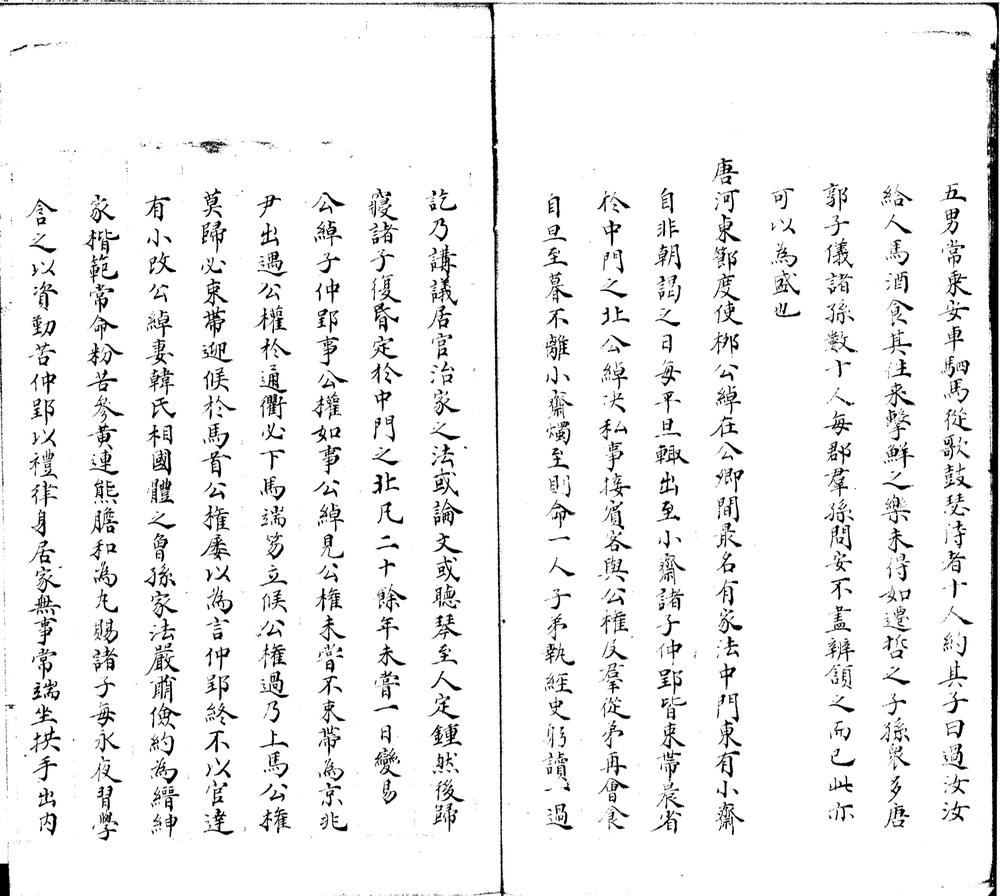 五男常乘安車駟馬從歌鼓瑟侍者十人約其子曰過汝汝
給人馬酒食其往来擊鮮之樂未得如遷哲之子孫衆多唐
郭子儀諸孫數十人每郡羣孫問安不盡辨頷之而已此亦
可以為盛也
唐河東節度使桞公綽在公卿間最名有家法中門東有小齋
自非朝謁之日每平旦輙出至小齋諸子仲郢皆束帶晨省
於中門之北公綽决私事接賓客與公權及羣從弟再會食
自旦至暮不離小齋燭至則命一人子弟執經史躬讀一過
訖乃講議居官治家之法或論文或聽琴至人定鍾然後歸
寢諸子復昏定於中門之北凡二十餘年未嘗一日變易
公綽子仲郢事公權如事公綽見公權未嘗不束帶為京兆
尹出遇公權於通衢必下馬端笏立候公權過乃上馬公權
莫歸必束帶迎候於馬首公權屡以為言仲郢終不以官達
有小改公綽妻韓氏相國體之曾孫家法嚴肅儉約為縉紳
家楷範常命粉苦參黄連熊膽和為丸賜諸子每永夜習學
含之以資勤苦仲郢以禮律身居家無事常端坐拱手出内